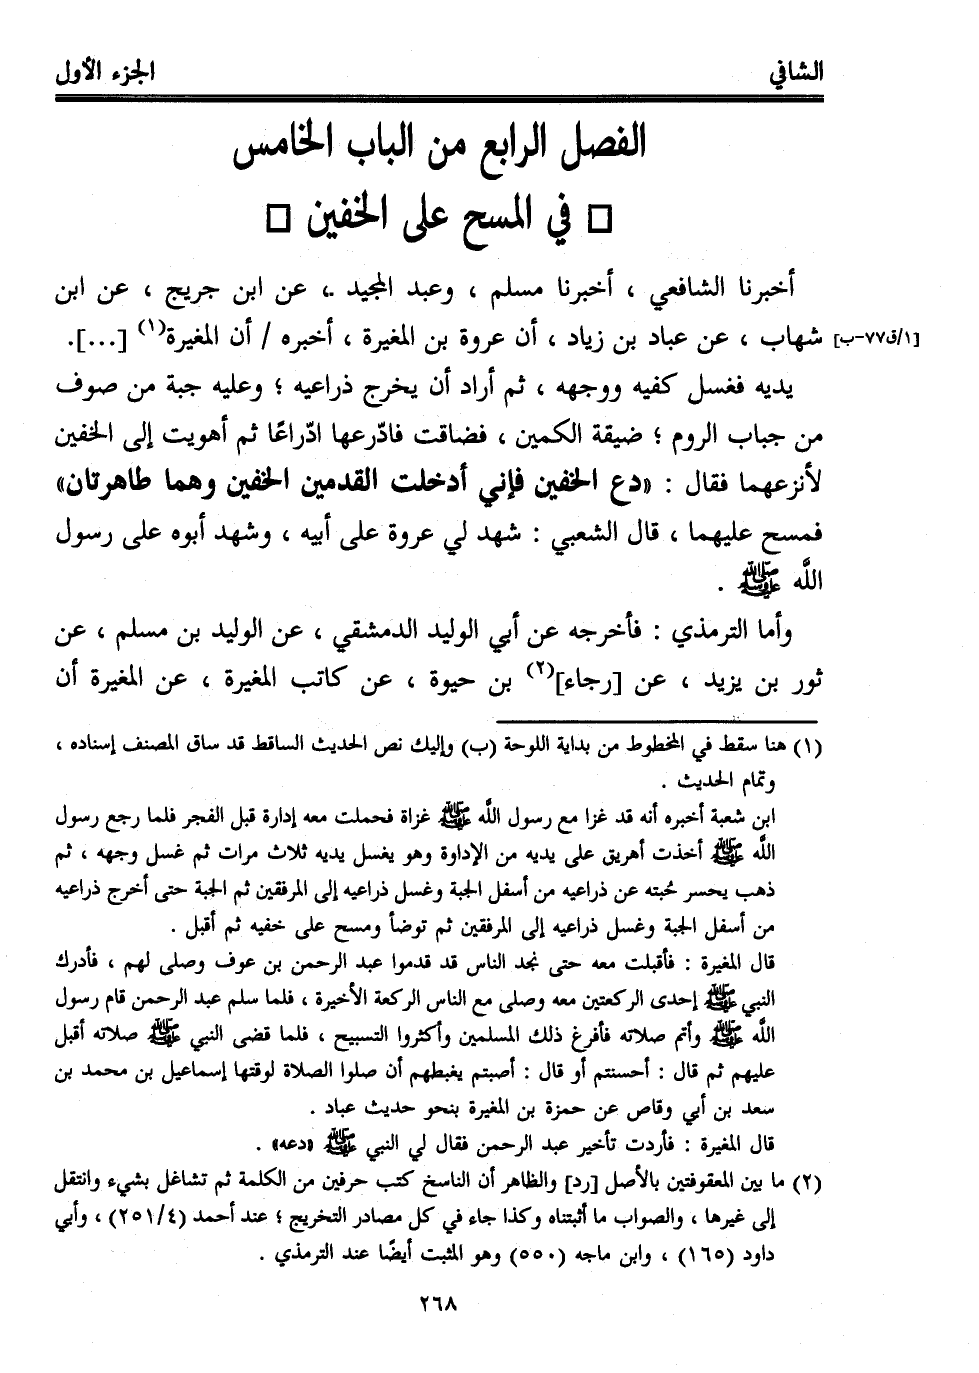 الشافي الجزء الأول
الفصل الرابع من الباب الخامس
□ في المسح على الخفين □
أخبرنا الشافعي ، أخبرنا مسلم ، وعبد المجيد ، عن ابن جريج ، عن ابن
شهاب ، عن عباد بن زياد ، أن عروة بن المغيرة ، أخبره / أن المغيرة(١) [...]. [١/ق٧٧-ب]
يديه فغسل كفيه ووجهه ، ثم أراد أن يخرج ذراعيه ؛ وعليه جبة من صوف
من جباب الروم ؛ ضيقة الكمين ، فضاقت فادّرعها ادّراعًا ثم أهويت إلى الخفين
لأنزعهما فقال : «دع الخفين فإني أدخلت القدمين الخفين وهما طاهرتان»
فمسح عليهما ، قال الشعبي : شهد لي عروة على أبيه ، وشهد أبوه على رسول
اللَّه ﷺ .
وأما الترمذي : فأخرجه عن أبي الوليد الدمشقي ، عن الوليد بن مسلم ، عن
ثور بن يزيد ، عن [رجاء](٢) بن حيوة ، عن كاتب المغيرة ، عن المغيرة أن
(١) هنا سقط في المخطوط من بداية اللوحة (ب) وإليك نص الحديث الساقط قد ساق المصنف إسناده ،
وتمام الحديث .
ابن شعبة أخبره أنه قد غزا مع رسول اللَّه ﷺ غزاة فحملت معه إدارة قبل الفجر فلما رجع رسول
اللَّه ﷺ أخذت أهريق على يديه من الإداوة وهو يغسل يديه ثلاث مرات ثم غسل وجهه ، ثم
ذهب يحسر نحبته عن ذراعيه من أسفل الجبة وغسل ذراعيه إلى المرفقين ثم الجبة حتى أخرج ذراعيه
من أسفل الجبة وغسل ذراعيه إلى المرفقين ثم توضأ ومسح على خفيه ثم أقبل .
قال المغيرة : فأقبلت معه حتى نجد الناس قد قدموا عبد الرحمن بن عوف وصلى لهم ، فأدرك
النبي ﷺ إحدى الركعتين معه وصلى مع الناس الركعة الأخيرة ، فلما سلم عبد الرحمن قام رسول
اللَّه ﷺ وأتم صلاته فأفرغ ذلك المسلمين وأكثروا التسبيح ، فلما قضى النبي ﷺ صلاته أقبل
عليهم ثم قال : أحسنتم أو قال : أصبتم يغبطهم أن صلوا الصلاة لوقتها إسماعيل بن محمد بن
سعد بن أبي وقاص عن حمزة بن المغيرة بنحو حديث عباد .
قال المغيرة : فأردت تأخير عبد الرحمن فقال لي النبي ﷺ «دعه» .
(٢) ما بين المعقوفتين بالأصل [رد] والظاهر أن الناسخ كتب حرفين من الكلمة ثم تشاغل بشيء وانتقل
إلى غيرها ، والصواب ما أثبتناه وكذا جاء في كل مصادر التخريج ؛ عند أحمد (٢٥١/٤) ، وأبي
داود (١٦٥) ، وابن ماجه (٥٥٠) وهو المثبت أيضًا عند الترمذي .
٢٦٨